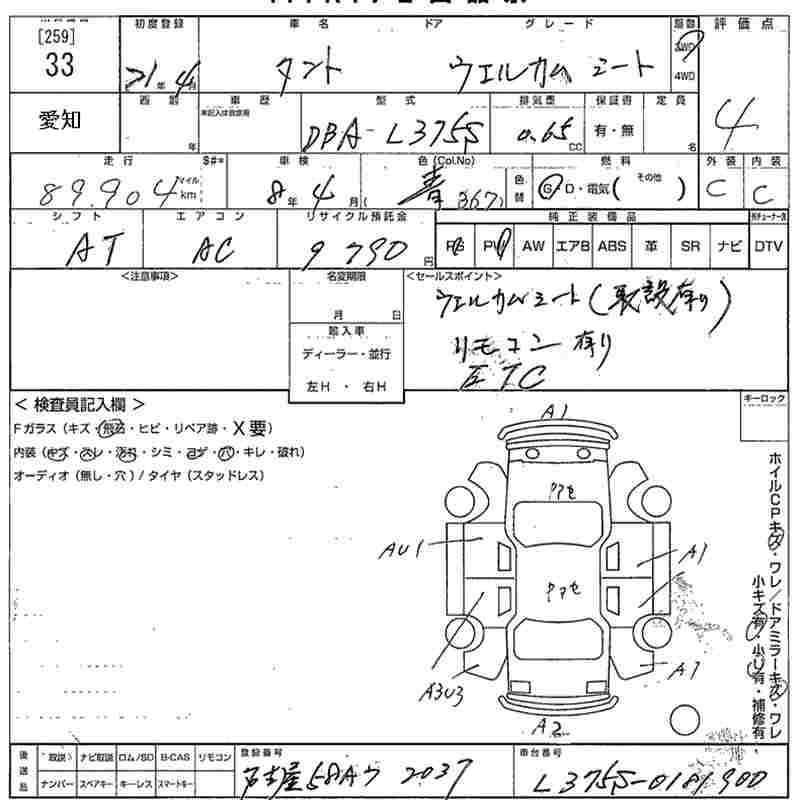 [259]
33
初度登録
21年 4月
車名 ドア グレード
タント ウェルカムシート
駆動
2WD
4WD
評価点
4
愛知
車歴
未記入は自家用
年
型式
DBA-L375S
排気量
0.65 CC
保証書
有・無
定員
名
走行
89,904 マイル km
$#*
車検
8年 4月
色(Col.No)
青 B67)
色替
燃料
G・D・電気( その他 )
外装
C
内装
C
シフト
AT
エアコン
AC
リサイクル預託金
9790 円
純正装備品
PS PW AW エアB ABS 革 SR ナビ DTV
<注意事項>
名変期限
月 日
輸入車
ディーラー・並行
左H・右H
<セールスポイント>
ウェルカムシート(取説有り)
リモコン有り
ETC
キーロック
< 検査員記入欄 >
Fガラス(キズ・飛石・ヒビ・リペア跡・X要)
内装(キズ・スレ・汚れ・シミ・コゲ・穴・キレ・破れ)
オーディオ(無し・穴)/タイヤ(スタッドレス)
A1
AU1
A1
A3U3
A1
A2
ホイルCPキズ・ワレ/ドアミラーキズ・ワレ
小キズ有・小U有・補修有
後送品
取説 ナビ取説 ロム/SD B-CAS リモコン
ナンバー スペアキー キーレス スマートキー
登録番号
名古屋 58A ウ 2037
車台番号
L375S-0181900